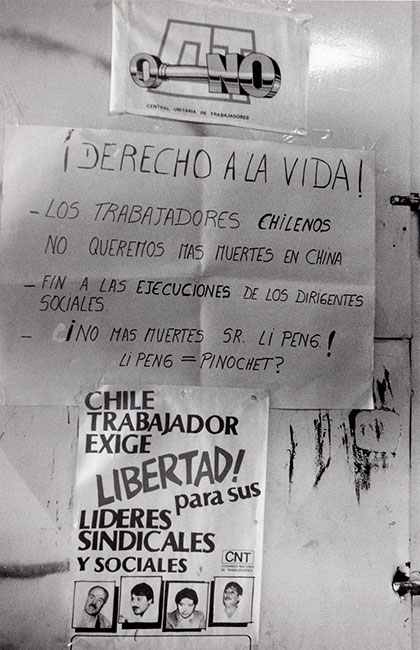 NO
CENTRAL UNITARIA DE TRABAJADORES
¡DERECHO A LA VIDA!
- LOS TRABAJADORES CHILENOS
NO QUEREMOS MAS MUERTES EN CHINA
- FIN A LAS EJECUCIONES DE LOS DIRIGENTES
SOCIALES.
- ¡NO MAS MUERTES SR. LI PENG!
LI PENG = PINOCHET?
CHILE
TRABAJADOR
EXIGE
LIBERTAD!
para sus
LIDERES
SINDICALES
Y SOCIALES
CNT
COMANDO NACIONAL
DE TRABAJADORES